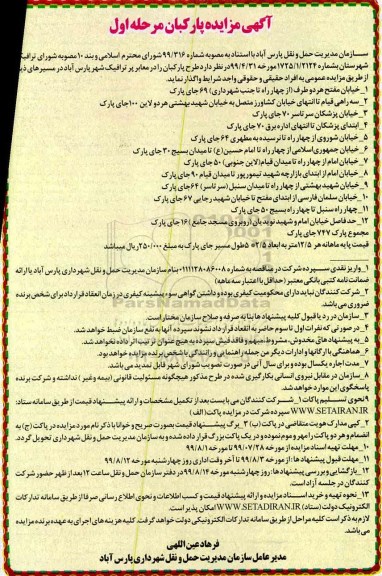 آگهی مزایده پارکبان مرحله اول
سازمان مدیریت حمل و نقل پارس آباد با استناد به مصوبه شماره ۹۹/۳۱۶ شورای محترم اسلامی و بند ۱۰ مصوبه شورای ترافیک
شهرستان بشماره ۱۷۲۵/۱/۲۱۲۴ مورخه ۹۹/۴/۳۱ در نظر دارد طرح پارکبان را در معابر پر ترافیک شهر پارس آباد در مسیرهای ذیل
از طریق مزایده عمومی به افراد حقیقی و حقوقی واجد شرایط واگذار نماید.
۱_ خیابان مفتح هر دو طرف (از چهار راه تا جنب شهرداری) ۶۹ جای پارک
۲_ سه راهی قیام تا انتهای خیابان کشاورز متصل به خیابان شهید بهشتی هر دو لاین ۱۰۰ جای پارک
۳_ خیابان پزشکان سر تاسر ۷۰ جای پارک
۴_ ابتدای پزشکان تا انتهای اداره برق ۷۰ جای پارک
۵_ خیابان شوروی از چهار راه تا نرسیده به مطهری ۶۴ جای پارک
۶_ خیابان جمهوری اسلامی از چهار راه تا امام حسین (ع) تا میدان بسیج ۳۰ جای پارک
۷_ خیابان امام از چهار راه تا میدان قیام (لاین جنوبی) ۵۰ جای پارک
۸_ خیابان امام از ابتدای بازارچه شهید تیمورپور تا میدان قیام ۹۰ جای پارک
۹_ خیابان شهید بهشتی از چهار راه تا میدان سنبل (سر تاسر) ۶۴ جای پارک
۱۰_ خیابان سلمان فارسی از ابتدای مفتح تا خیابان شهید رجایی ۶۷ جای پارک
۱۱_ چهار راه سنبل تا چهار راه بسیج ۵۰ جای پارک
۱۲_ حد فاصل خیابان امام و شهید نوبدیان (روبروی مسجد جامع) ۱۶ جای پارک
مجموع پارک ۷۴۷ جای پارک
قیمت پایه ماهانه هر ۱۲/۵ متر به ابعاد ۲/۵*۵ طول مسیر جای پارک به مبلغ ۲۵۰/۰۰۰ ریال میباشد
۱_ واریز نقدی سپرده شرکت در مناقصه به شماره ۰۱۱۱۱۲۸۰۸۶۰۰۸ بنام سازمان مدیریت حمل و نقل شهرداری پارس آباد یا ارائه
ضمانت نامه کتبی بانکی معتبر (حداقل با اعتبار سه ماهه)
۲_ شرکت کنندگان نباید دارای محکومیت کیفری بوده و داشتن گواهی سوء پیشینه کیفری در زمان انعقاد قرارداد برای شخص برنده
ضروری می باشد.
۳_ سازمان در رد یا قبول کلیه پیشنهاد ها بنا به صرفه و صلاح سازمان مختار است.
۴_ در صورتی که نفرات اول تا سوم حاضر به انعقاد قرار داد نشوند سپرده آنها به نفع سازمان ضبط خواهد شد.
۵_ به پیشنهاد های مخدوش، مشروط، مبهم و فاقد فیش سپرده به هیچ عنوان ترتیب اثر داده نخواهد شد.
۶_ هماهنگی با ارگانها و ادارات دیگر من جمله راهنمایی و رانندگی با شخص برنده مزایده خواهد بود.
۷_ مدت اجاره یکسال بوده و برای سال آتی در صورت تصویب شورای شهر قابل تمدید می باشد.
۸_ سازمان در مقابل نیروی انسانی بکارگیری شده در طرح مذکور هیچگونه مسئولیت قانونی (بیمه و غیر) نداشته و شرکت برنده
پاسخگوی این موارد خواهد شد.
۹_ نحوی تسلیم پاکات ۱_ شرکت کنندگان می بایست بعد از تکمیل مشخصات و ارائه پیشنهاد قیمت از طریق سامانه ستاد:
WWW.SETADIRAN.IR سپرده شرکت در مزایده پاکت (الف)
۲_ کپی مدارک هویت متقاضی در پاکت (ب) ۳_ برگ پیشنهاد قیمت بصورت صریح و خوانا با ذکر نام مورد مزایده در پاکت (ج) به
انضمام و هر دو پاکت را مهر و موم نموده و در یک پاکت بزرگ قرار داده شده و به سازمان مدیریت حمل و نقل شهرداری تحویل گردد.
۱۰_ مهلت تهیه اسناد مزایده از مورخه ۹۹/۰۷/۲۸ تا مورخه ۹۹/۸/۱
۱۱_ مهلت قبول پیشنهاد ها: از مورخه ۹۹/۸/۳ تا آخر وقت اداری روز چهارشنبه مورخه ۹۹/۸/۱۳
۱۲_ بازگشایی و بررسی پیشنهاد ها: روز چهارشنبه مورخه ۹۹/۸/۱۴ در دفتر سازمان حمل و نقل ساعت ۱۲ بعد از ظهر حضور شرکت
کنندگان در جلسه آزاد است.
۱۳_ نحوه تهیه و خرید اسناد مزایده و ارائه پیشنهاد قیمت و کسب اطلاعات و نحوی اطلاع رسانی صرفا از طریق سامانه تدارکات
الکترونیک دولت (ستاد) WWW.SETADIRAN.IR امکان پذیر است.
لازم به ذکر است کلیه مراحل از طریق سامانه تدارکات الکترونیکی دولت خواهد گرفت. کلیه هزینه های اجرای به عهده برنده مزایده
می باشد.
فرهاد عین اللهی
مدیر عامل سازمان مدیریت حمل و نقل شهرداری پارس آباد